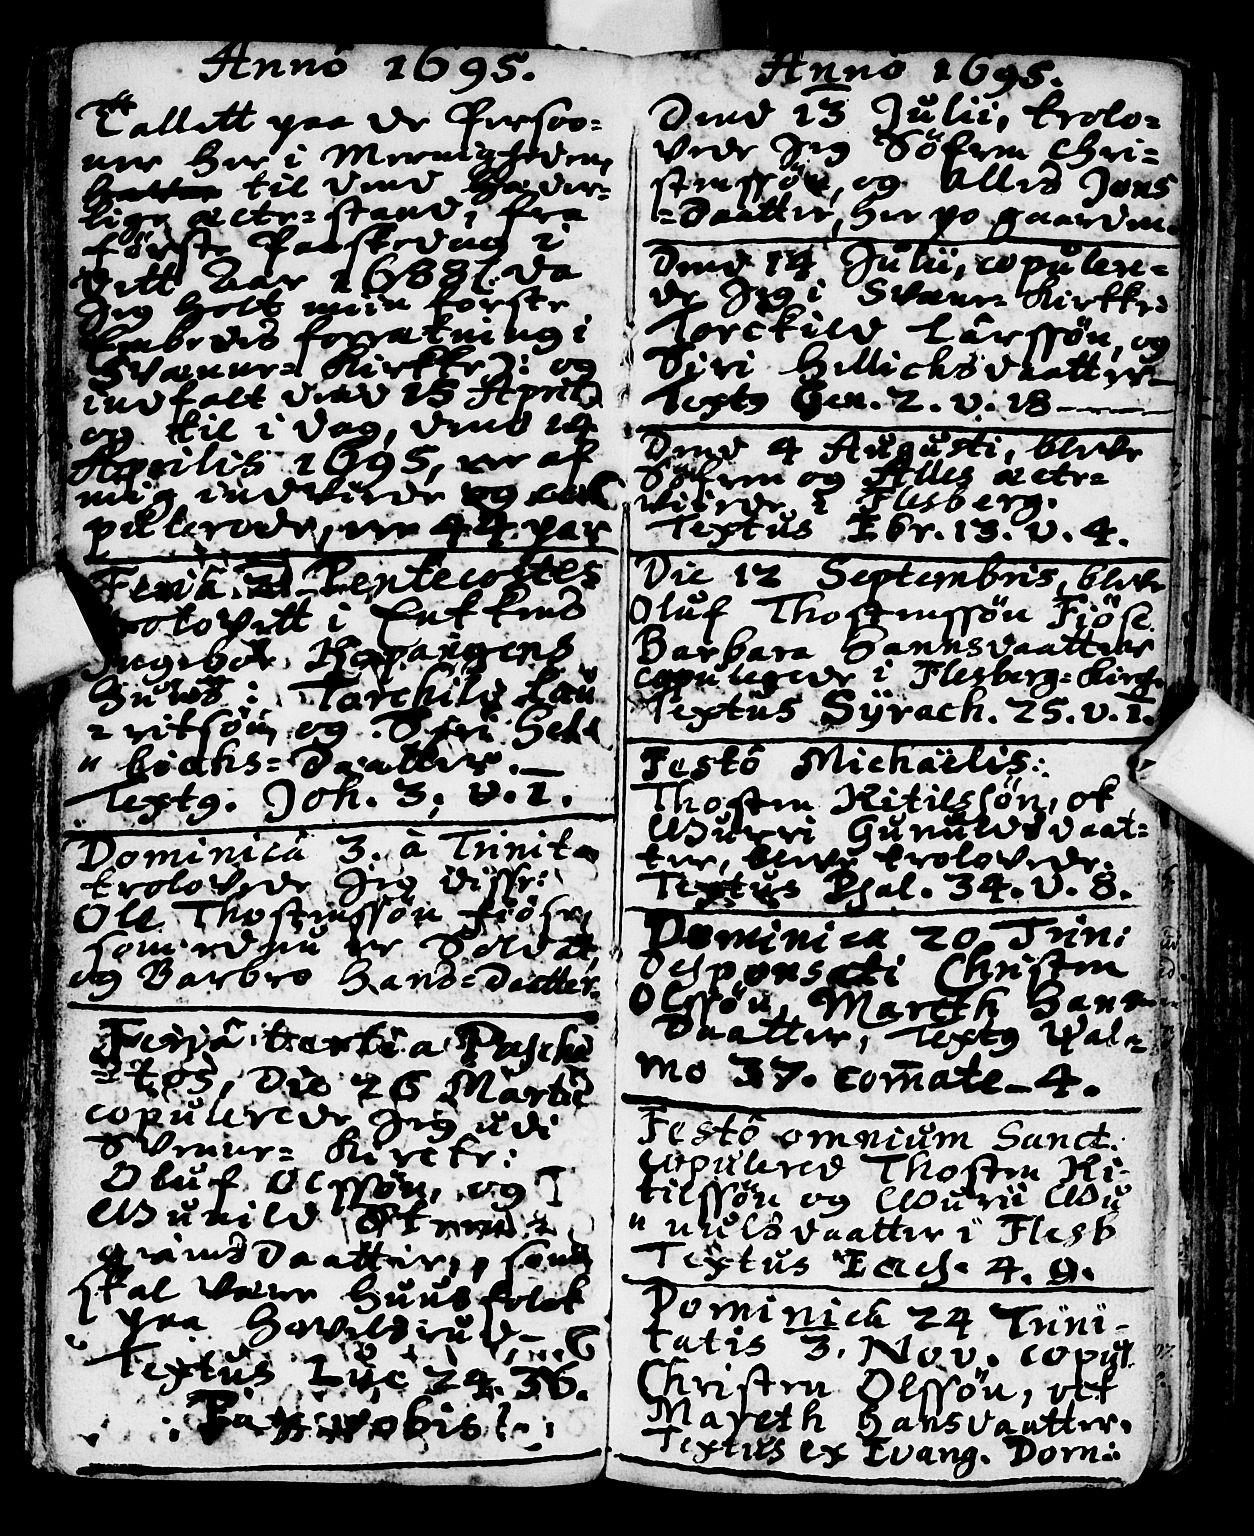 Anno 1695.
Tallett paa de Persoo=
ner her i Menigheden,
til dend Hæder=
lige ecte=stand, fra
første Paaskedag i
dett Aar 1688 /: da
Jeg holt min første
Embedis forretning i
Svenne= Kirkke :/ og
indfalt dend 15 April,
og til i dag, dend 14
Aprilis 1695, er af
mig indviede og co
pulerede, er 44. par
Feria 2. Pentecostes
trolovett i Enkkens
Ingebor Kopangens
Huus: Torchild Lau
= ritsøn og Siri Hel
" lichs= Daatter.
Text9. Joh. 3, v. 1.
Dominica 3. à Trinit.
trolovede Jeg disse:
Ole Thostenssøn fiøse,
som ednu er Soldat,
og Barbro Hans=Daatter.
Feriâ tertia Pascha
= tos, Die 26 Martii
copulerede Jeg udi
Svenne= Kircke:
Oluf Olssøn, og
Gunild
grimsdaatter, som
skal være Huusfolck
paa
Textus Luc 24. 36.
Pax vobis!
Anno 1695.
Dend 13 Julii, trolo=
vede Jeg Søfren Chri=
stenssøn, og Alles Jens
=Daatter, her po gaarden.
Dend 14 Julii, copulere=
de Jeg i Svenne= Kirkke:
Torckild Larssøn, og
Siri Hellichsdaatter
Text9 Gen. 2. v. 18
Dend 4 Augusti, bleve
Søfren og Alles ecte=
viede i Flesberg.
Textus Ebr. 13. v. 4.
Die 12 Septembris, bleve
Oluf Thostenssøn Fiøse
Barbara Hannsdaatter
copulerede i Flesberg=Kirg
Textus Sÿrach. 25. v. 1.
Festô Michaëlis:
Thosten Kitilssøn, ok
Gurri Gunulds daat=
ter, bleve trolovede.
Textus Psal. 34. v. 8.
Dominica 20 Trin:
Desponsati Christen
Olssøn, Mareth Hann
Daatter, Text9 Psal=
mo 37. com̄ate 4.
Festô omnium Sanct:
Copulered Thosten Ki-
tilssøn og Gurii Gu
" nulsdaatter i Flesb
Textus Eccl. 4. 9.
Dominicâ 24 Trini-
tatis 3. Nov. copul
Christen Olssøn, ock
Mareth Hansdaatter.
Textus ex Evang. Dom: